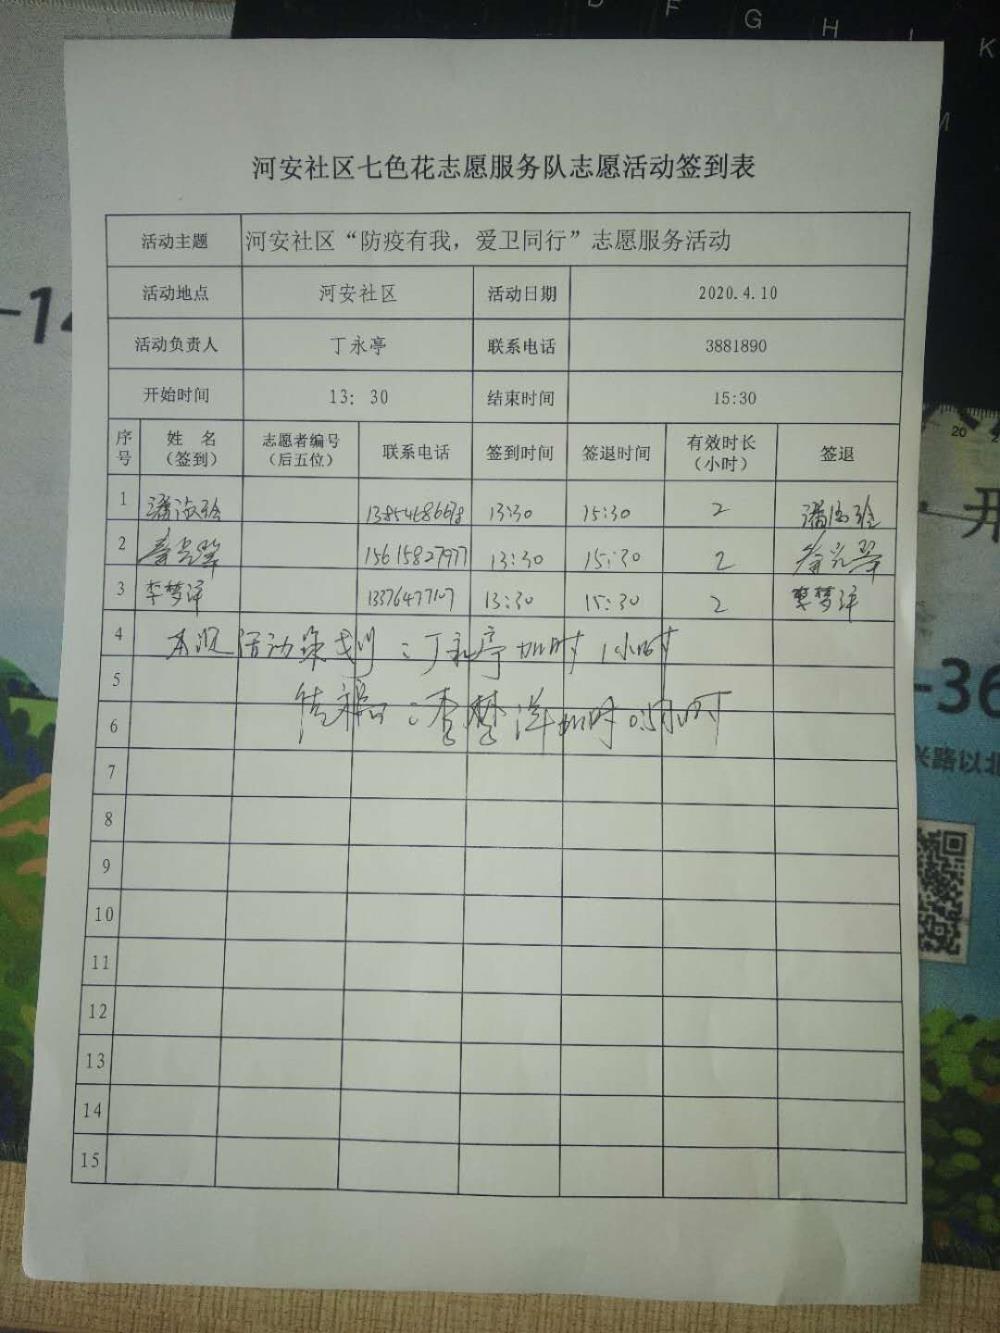 D F G H J K
M
河安社区七色花志愿服务队志愿活动签到表
活动主题 河安社区“防疫有我，爱卫同行”志愿服务活动
活动地点 河安社区 活动日期 2020.4.10
活动负责人 丁永亭 联系电话 3881890
开始时间 13: 30 结束时间 15:30
序号 姓 名（签到） 志愿者编号（后五位） 联系电话 签到时间 签退时间 有效时长（小时） 签退
1 13:30 15:30 2
2 15615827977 13:30 15:30 2
3 李梦洋 13376477107 13:30 15:30 2 李梦洋
4 本次活动策划：丁永亭加时1小时
5
6 ：李梦洋加时0.5小时
7
8
9
10
11
12
13
14
15
-14
20 2
开
-36
兴路以北